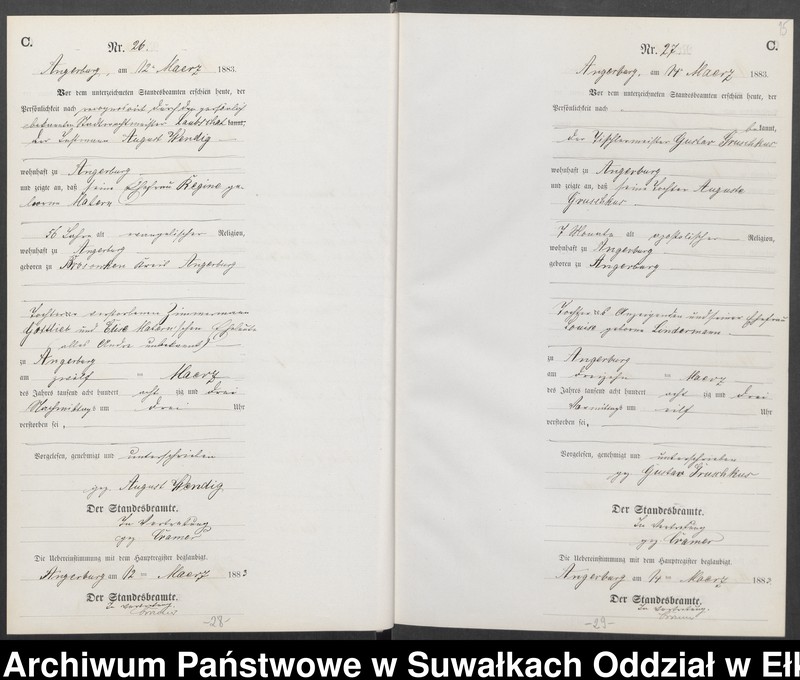 C.
Nr. 26.
Angerburg, am 12ten Maerz 1883.
Vor dem unterzeichneten Standesbeamten erschien heute, der
Persönlichkeit nach durch den persönlich
bekannten Stadtwachtmeister kannt,
der Losmann August Wendig
wohnhaft zu Angerburg
und zeigte an, daß seine Ehefrau Regine ge-
borene Matern
56 Jahre alt evangelischer Religion,
wohnhaft zu Angerburg
geboren zu Brosowken Kreis Angerburg
Tochter der verstorbenen Zimmermann
Gottlieb und Matern'schen Eheleute
alles Andre unbekannt)
zu Angerburg
am zwölf ten Maerz
des Jahres tausend acht hundert acht zig und drei
Nachmittags um drei Uhr
verstorben sei.
Vorgelesen, genehmigt und unterschrieben
gez. August Wendig.
Der Standesbeamte.
In Vertretung
gez. Cramer
Die Uebereinstimmung mit dem Hauptregister beglaubigt.
Angerburg am 12 ten Maerz 1883
Der Standesbeamte.
In Vertretung
Cramer
-28-
Nr. 27.
C.
Angerburg, am 14 Maerz 1883.
Vor dem unterzeichneten Standesbeamten erschien heute, der
Persönlichkeit nach
bekannt,
der Tischlermeister Gustav Gruschkus
wohnhaft zu Angerburg
und zeigte an, daß seine Tochter Auguste
Gruschkus
7 Monate alt apostolischer Religion,
wohnhaft zu Angerburg
geboren zu Angerburg
Tochter des Anzeigenden und seiner Ehefrau
Louise geborene Lendermann
zu Angerburg
am dreizehn ten Maerz
des Jahres tausend acht hundert acht zig und drei
Vormittags um eilf Uhr
verstorben sei.
Vorgelesen, genehmigt und unterschrieben
gez. Gustav Gruschkus
Der Standesbeamte.
In Vertretung
gez. Cramer
Die Uebereinstimmung mit dem Hauptregister beglaubigt.
Angerburg am 14 ten Maerz 1883.
Der Standesbeamte.
In Vertretung.
Cramer
-29-
Archiwum Państwowe w Suwałkach Oddział w Ełk